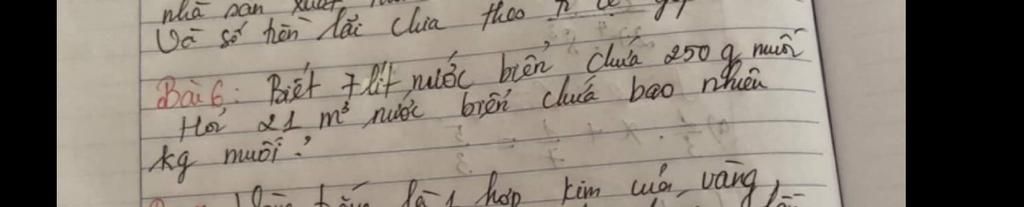 nhà sản xuất
Và số tiền lãi chia theo
Bài 6: Biết 7 lít nước biển chứa 250 g muối
Hỏi 21 m³ nước biển chứa bao nhiêu
kg muối?
là 1 hợp kim của vàng